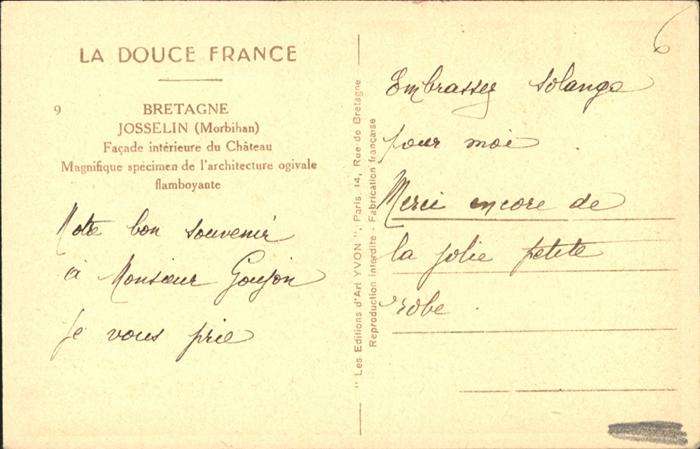 LA DOUCE FRANCE
9
BRETAGNE
JOSSELIN (Morbihan)
Façade intérieure du Château
Magnifique spécimen de l'architecture ogivale
flamboyante
Notre bon souvenir
à Monsieur Goujon
je vous prie
" Les Editions d'Art YVON ", Paris. 14, Rue de Bretagne
Reproduction interdite - Fabrication française
6
Embrassez Solange
pour moi
Merci encore de
la jolie petite
robe